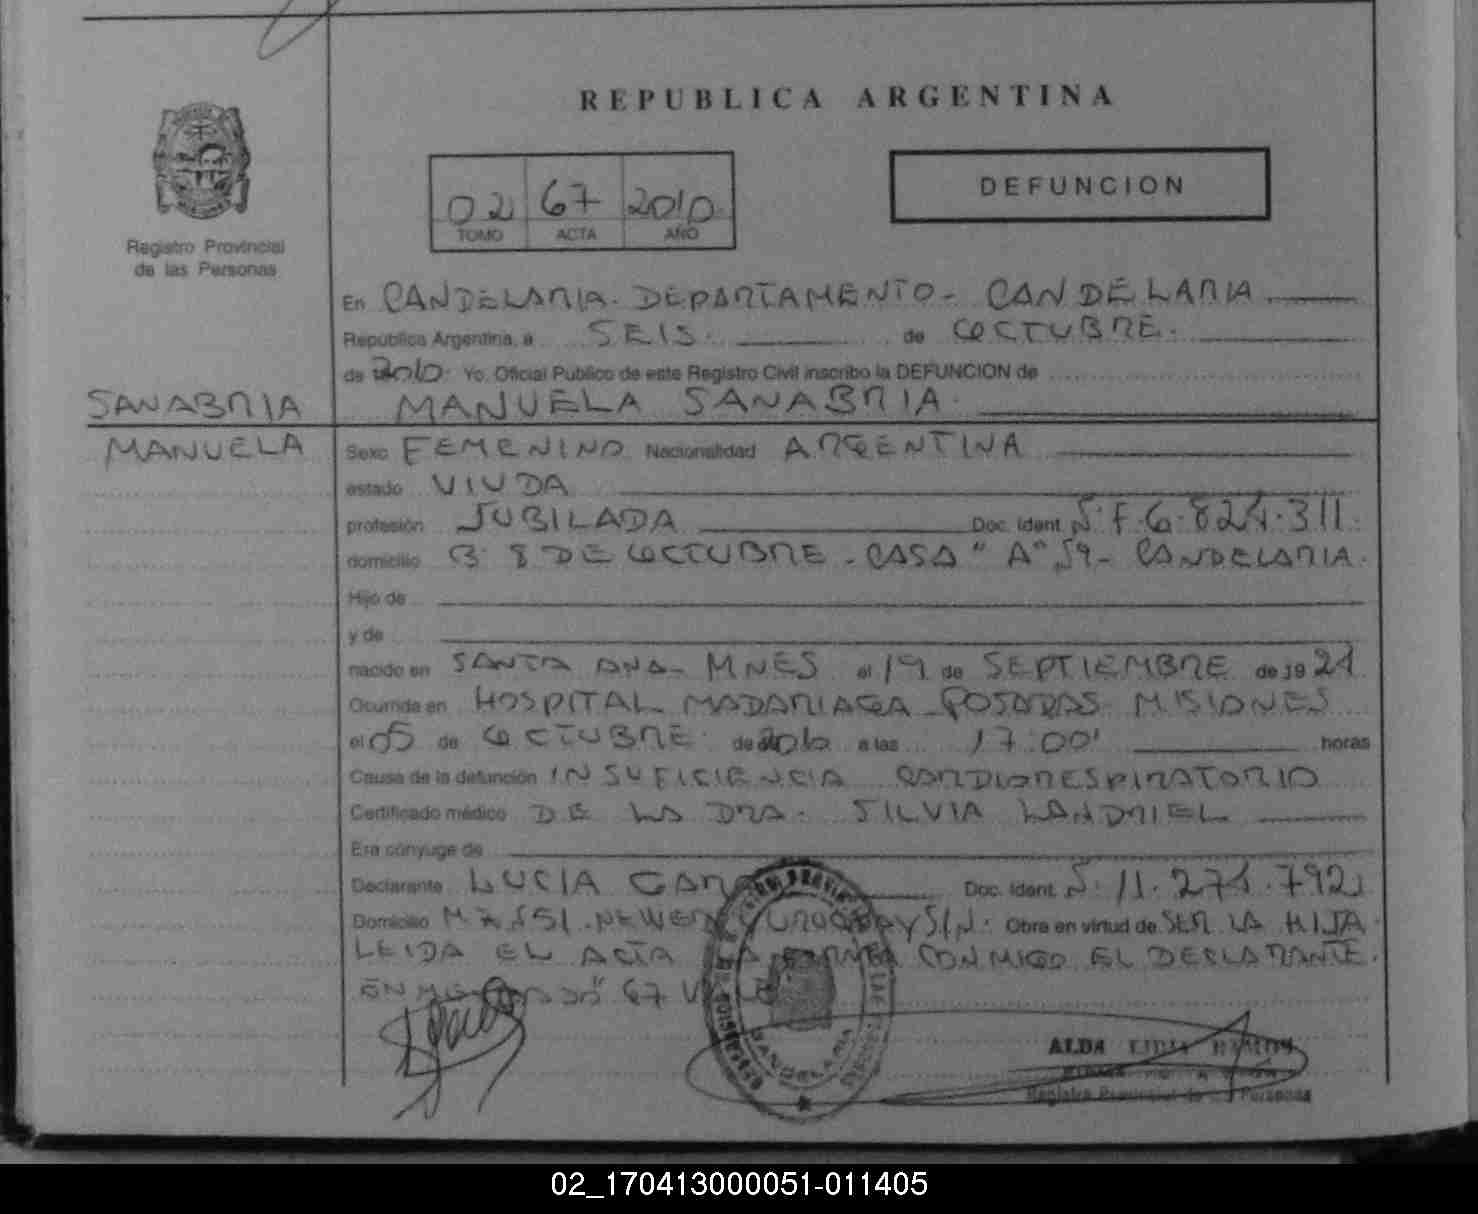 REPUBLICA ARGENTINA
DEFUNCION
02 67 2010
TOMO ACTA AÑO
Registro Provincial
de las Personas
En CANDELARIA. DEPARTAMENTO- CANDELARIA
República Argentina, a SEIS. de OCTUBRE.
de 2010. Yo, Oficial Publico de este Registro Civil inscribo la DEFUNCION de
SANABRIA MANUELA SANABRIA.
MANUELA Sexo FEMENINO Nacionalidad ARGENTINA
estado VIUDA
profesión JUBILADA Doc. Ident.
domicilio B. 8 DE OCTUBRE - CASA "A" 59 - CANDELARIA.
Hijo de
y de
nacido en SANTA ANA- MNES el 19 de SEPTIEMBRE de 19 21
Ocurrida en HOSPITAL MADARIAGA POSADAS MISIONES
el 05 de OCTUBRE de 2010 a las 17:00' horas
Causa de la defunción INSUFICIENCIA CARDIORESPIRATORIO
Certificado médico DE LA DRA. SILVIA LANDRIEL
Era cónyuge de
Declarante LUCIA Doc. Ident.
Domicilio S/N. Obra en virtud de SER LA HIJA.
LEIDA EL ACTA LA FIRMA CONMIGO EL DECLARANTE.
67
CANDELARIA
ALDA LIDIA RAMON
Registro Provincial de las Personas
02_170413000051-011405